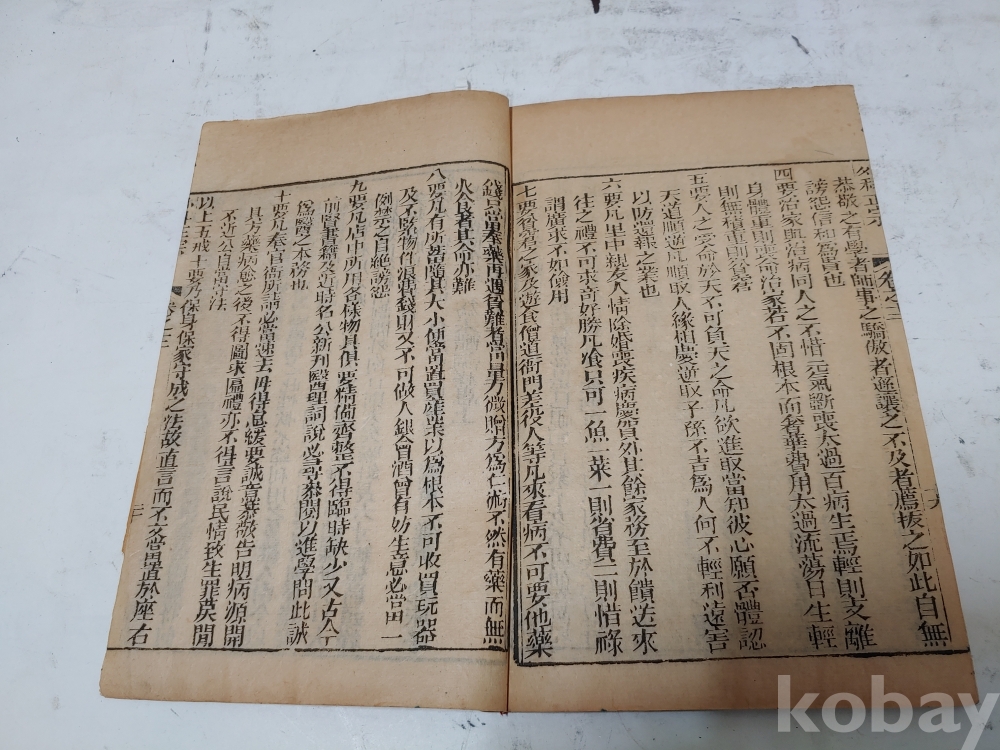 外科正宗
卷之三
恭敬之有學者師事之驕傲者遜讓之不及者薦拔之如此自無
謗怨信和爲貴也
四要治家與治病同人之不惜元氣斷喪太過百病生焉輕則支離
身體重則喪命治家若不固根本而奢華費用太過流蕩日生輕
則無積重則貧窘
五要人之受命於天不可負天之命凡欲進取當知彼心願否體認
天道順逆凡順取人緣相慶逆取子孫不吉爲人何不輕利遠害
以防還報之業也
六要凡里中親友人情除婚喪疾病慶賀外其餘家務至於饋送來
往之禮不可求奇好勝凡飧只可一魚一菜一則省費二則惜祿
謂廣求不如儉用
七要貧窮之家及遊食僧道衙門差役人等凡來看病不可要他藥
錢只當奉藥再遇貧難者當量力微贈方爲仁術不然有藥而無
火食者其命亦難
八要凡有所蓄隨其大小便當置買產業以爲根本不可收買玩器
及不緊物件浪費錢財又不可做人銀會酒會有妨生意必當一
例禁之自絕謗怨
九要凡店中所用各樣物具俱要精備齊整不得臨時缺少又古今
前賢書籍及近時名公新刊醫理詞說必尋參閱以進學問此誠
爲醫之本務也
十要凡奉官衙所請必當速去毋得怠緩要誠意恭敬告明病源開
具方藥病愈之後不得圖求匾禮亦不得言說民情致生罪戾閒
不近公自當守法
以上五戒十要乃保身保家守成之法故直言而不文當置於座右
卷之三